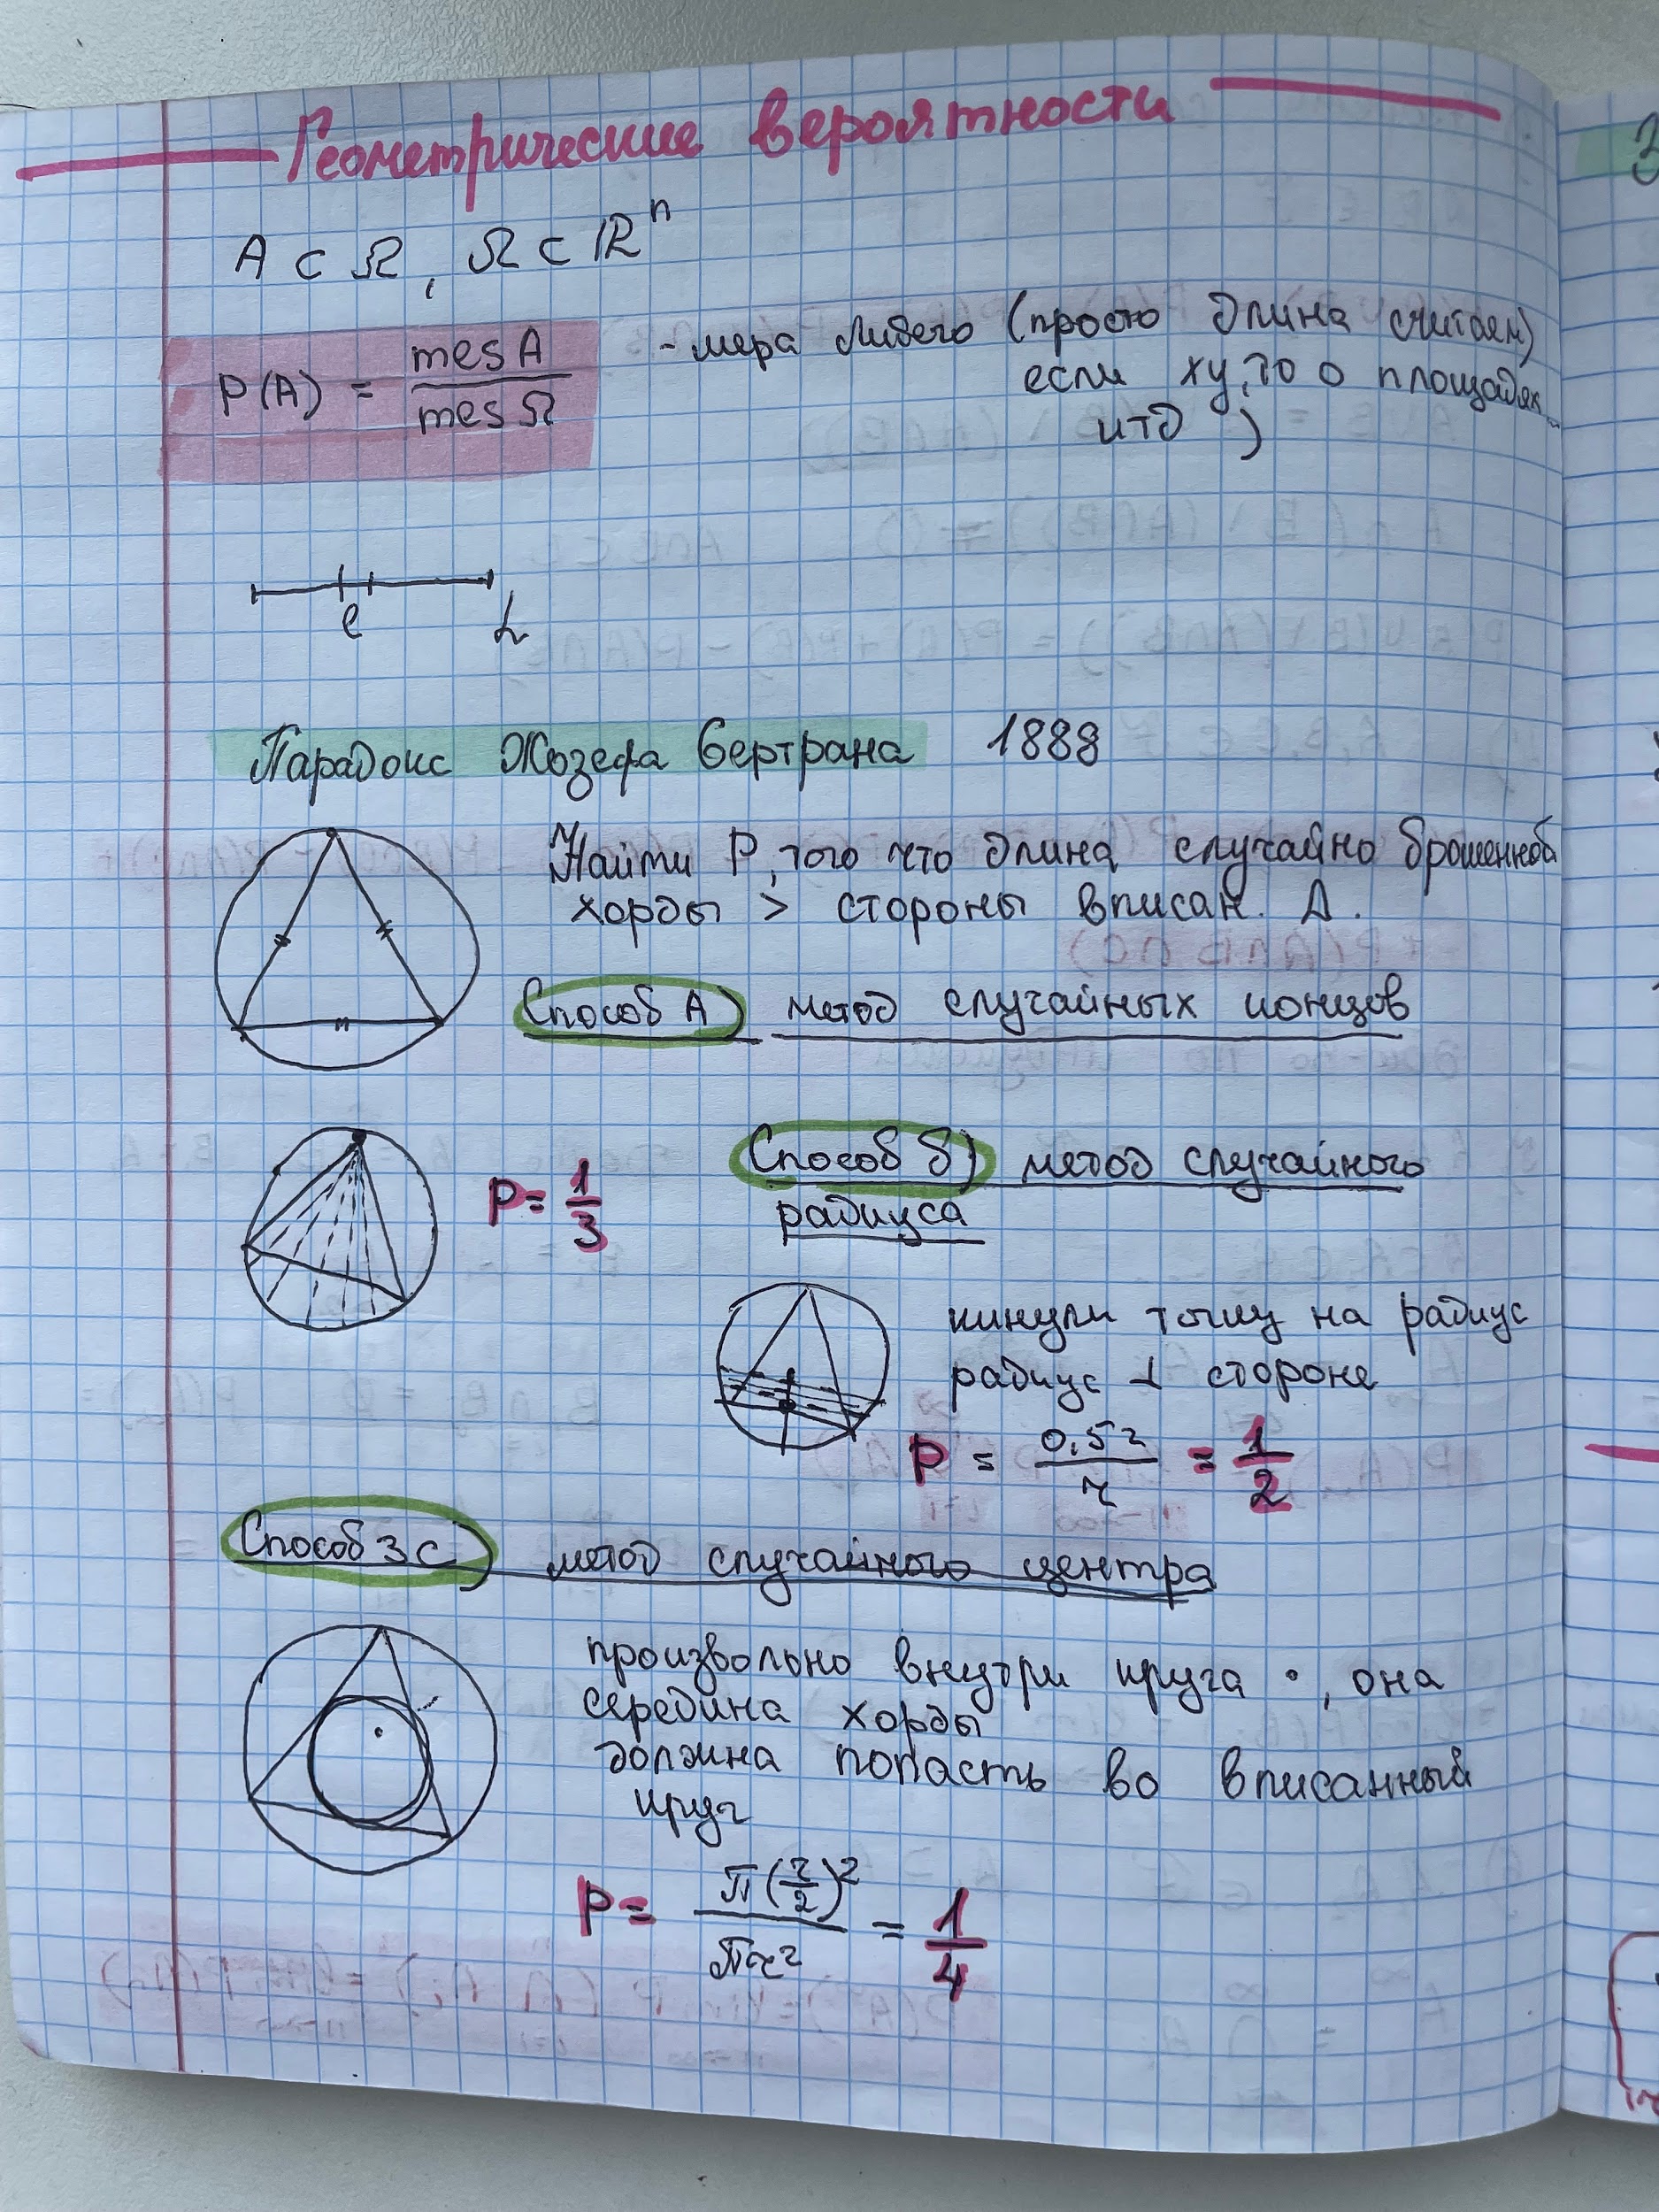 Геометрические вероятности
A ⊂ Ω, Ω ⊂ ℝⁿ
P(A) = mes A / mes Ω - мера Либего (просто длина считаем)
если xy, то о площадях
итд )
l L
Парадокс Жозефа Бертрана 1888
Найти P, того что длина случайно брошенной
хорды > стороны вписан. Δ.
Способ A) метод случайных концов
P = 1/3
Способ б) метод случайного
радиуса
кинули точку на радиус
радиус ⊥ стороне
P = 0,5r / r = 1/2
Способ 3 С) метод случайного центра
произвольно внутри круга •, она
середина хорды
должна попасть во вписанный
круг
P = π(r/2)² / πr² = 1/4